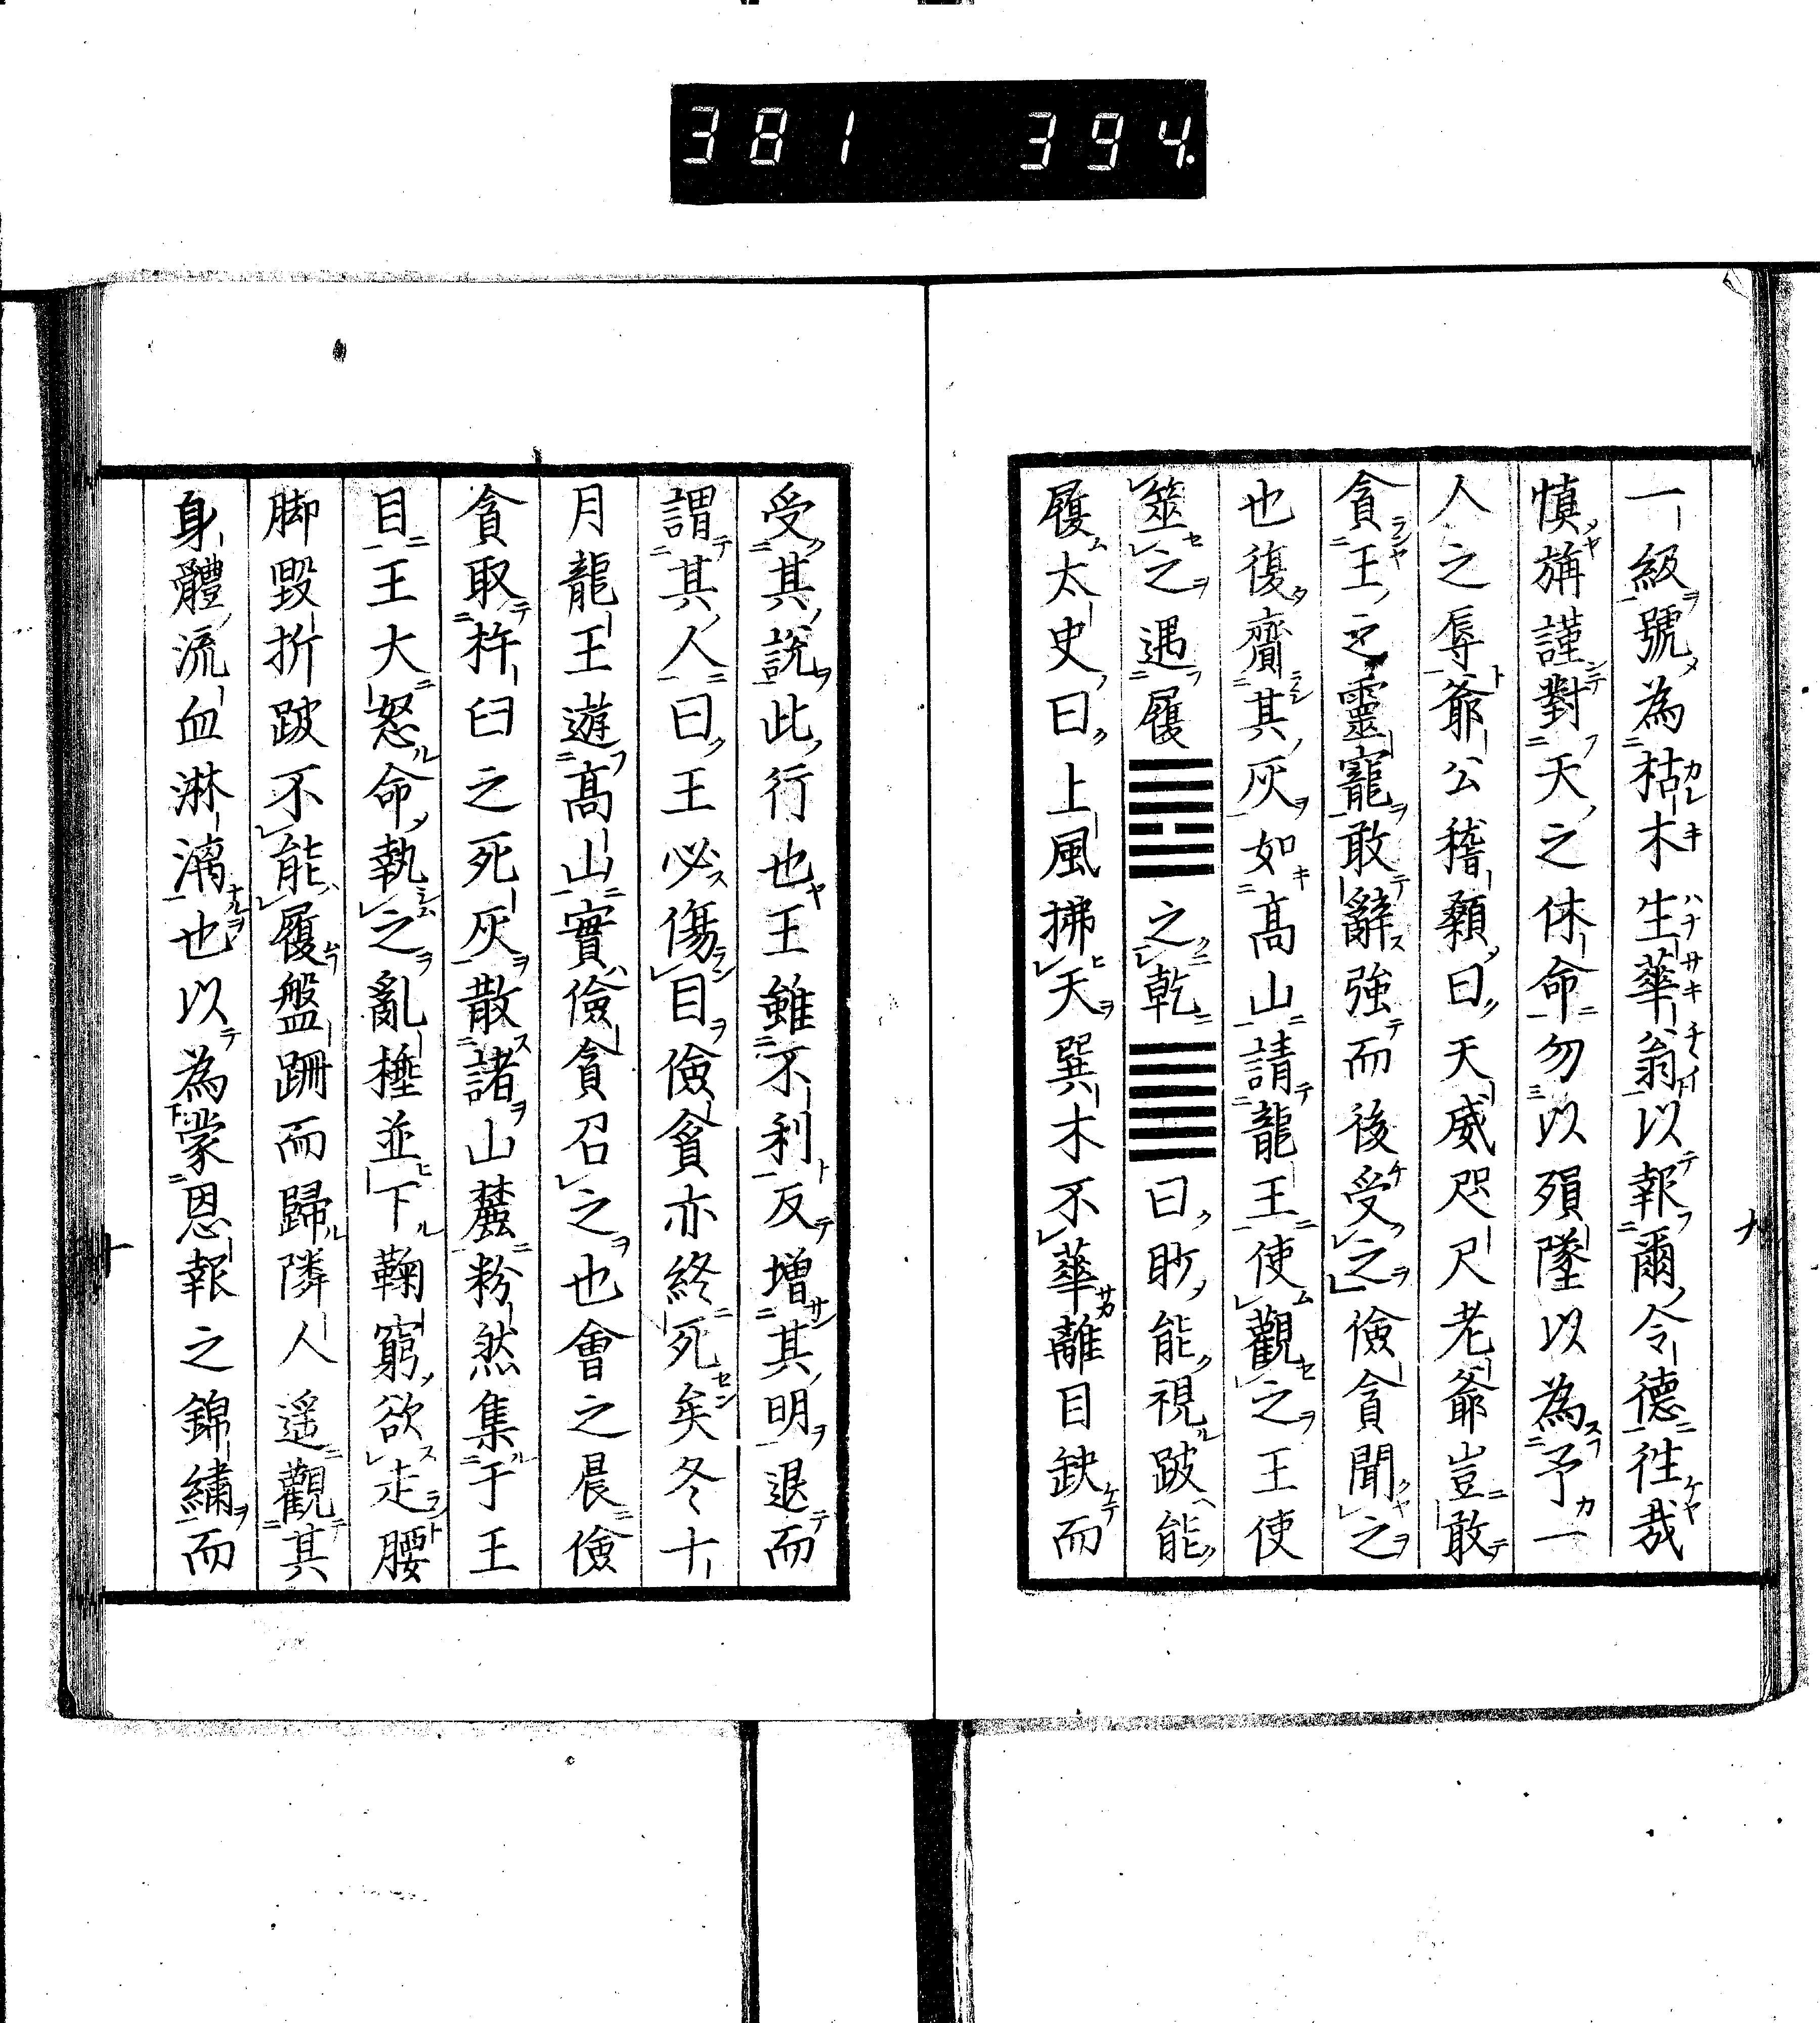 381 394.
一級號為枯木生華翁以報爾令德往哉
慎旃謹對天之休命勿以殞墜以為予一
人之辱爺公稽顙曰天威咫尺老爺豈敢
貪王之靈寵敢辭強而後受之儉貪聞之
也復齎其灰如高山請龍王使觀之王使
筮之遇履䷉之乾䷀曰眇能視跛能
履太史曰上風拂天巽木不華離目缺而
受其說此行也王雖不利反增其明退而
謂其人曰王必傷目儉貧亦終死矣冬十
月龍王遊高山實儉貪召之也會之晨儉
貪取杵臼之死灰散諸山麓粉然集于王
目王大怒命執之亂棰並下鞠窮欲走腰
脚毀折跛不能履盤跚而歸隣人遥觀其
身體流血淋漓也以為蒙恩報之錦繡而